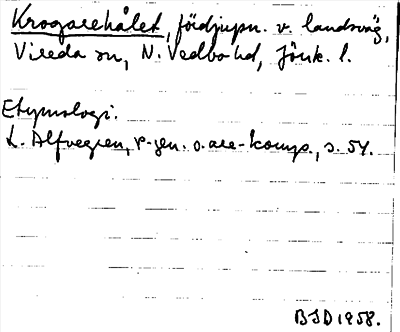 Krogarehålet, fördjupn. v. landsväg,
Vireda sn, N. Vedbo hd, Jönk. l.
Etymologi:
L. Alfvegren, r-gen. o. are-komp., s. 54.
BSD 1958.